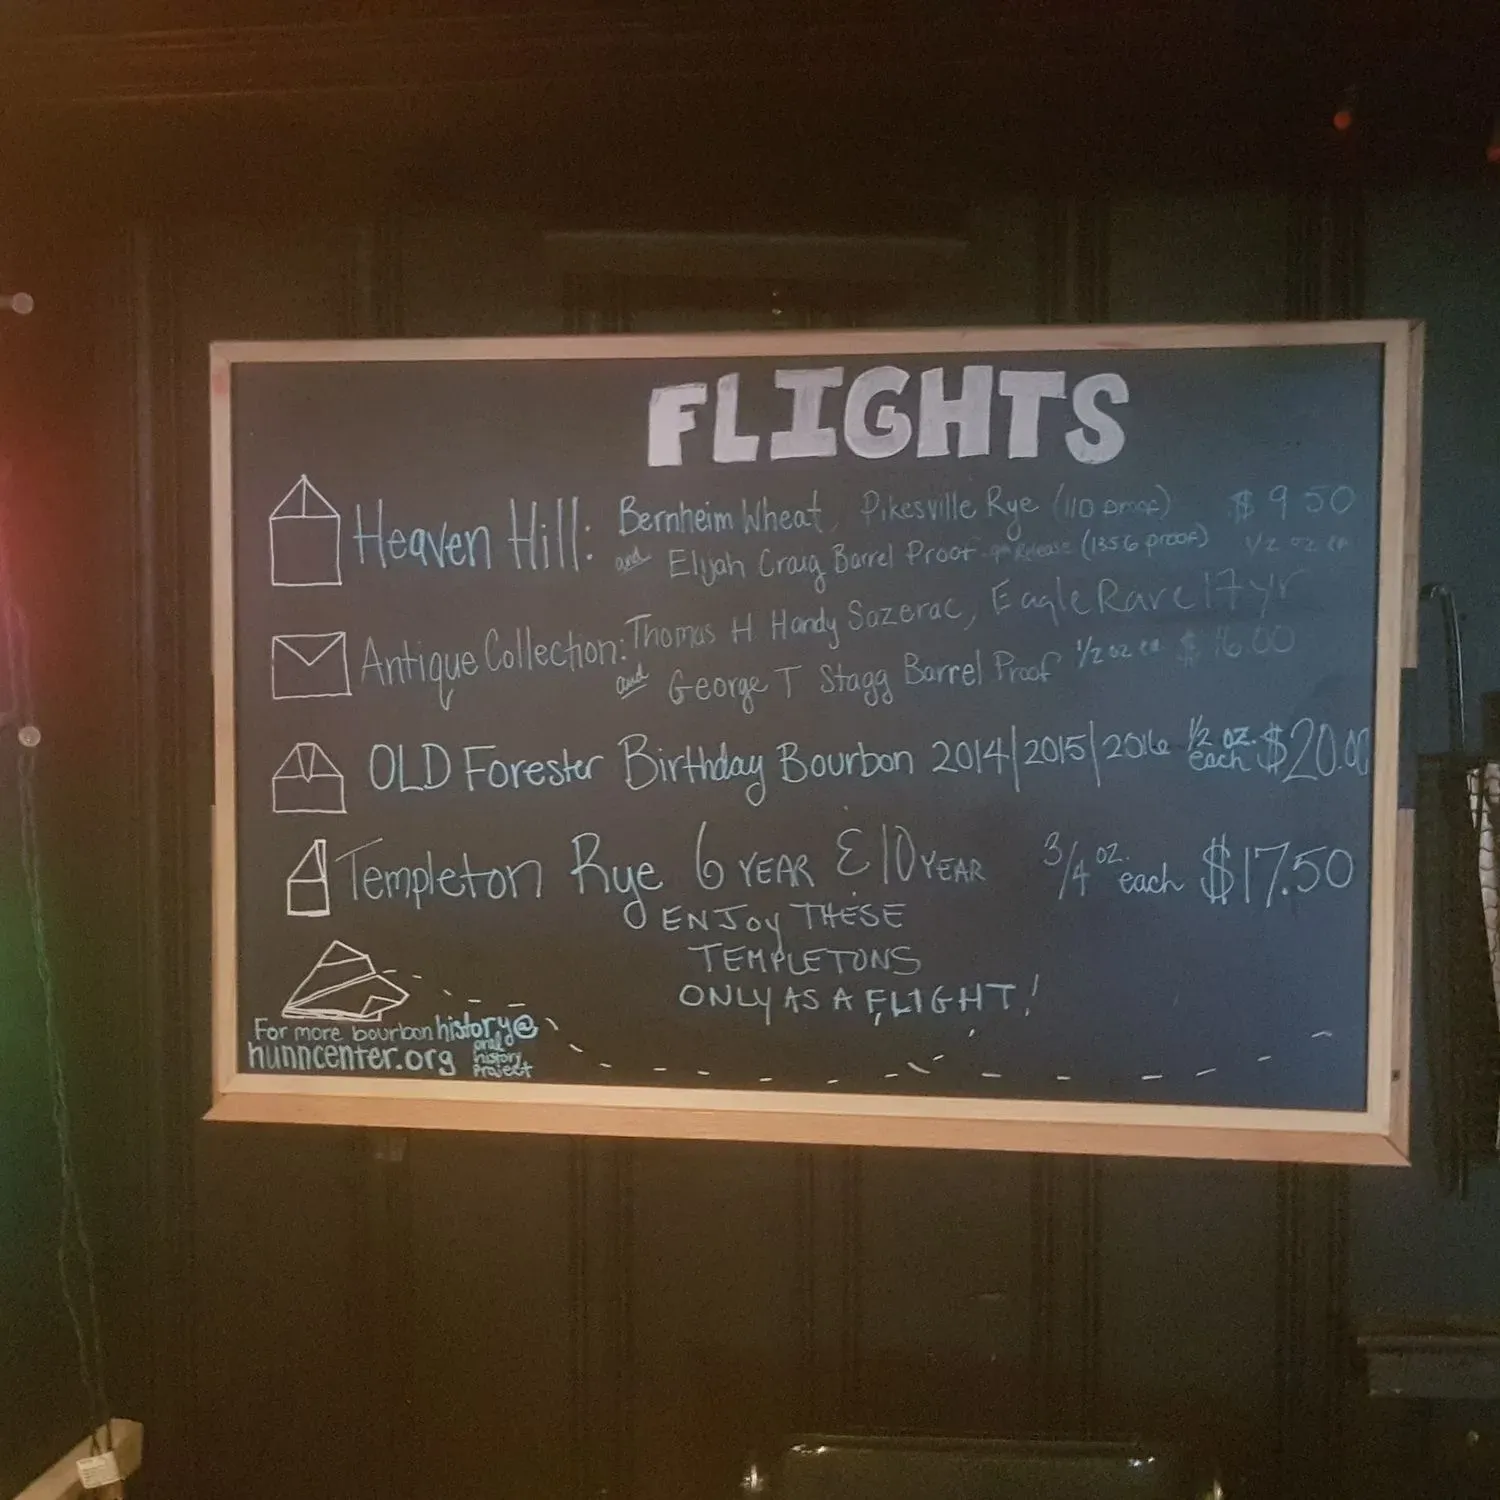 FLIGHTS
Heaven Hill: Bernheim Wheat, Pikesville Rye (110 proof) $9.50
and Elijah Craig Barrel Proof Release (135.6 proof) 1/2 oz ea
Antique Collection: Thomas H Handy Sazerac, Eagle Rare 17 yr
and George T Stagg Barrel Proof 1/2 oz ea $16.00
OLD Forester Birthday Bourbon 2014|2015|2016 1/2 oz. each $20.00
Templeton Rye 6 YEAR & 10 YEAR 3/4 oz. each $17.50
ENJOY THESE
TEMPLETONS
ONLY AS A FLIGHT!
For more bourbon history@
hunncenter.org oral history project